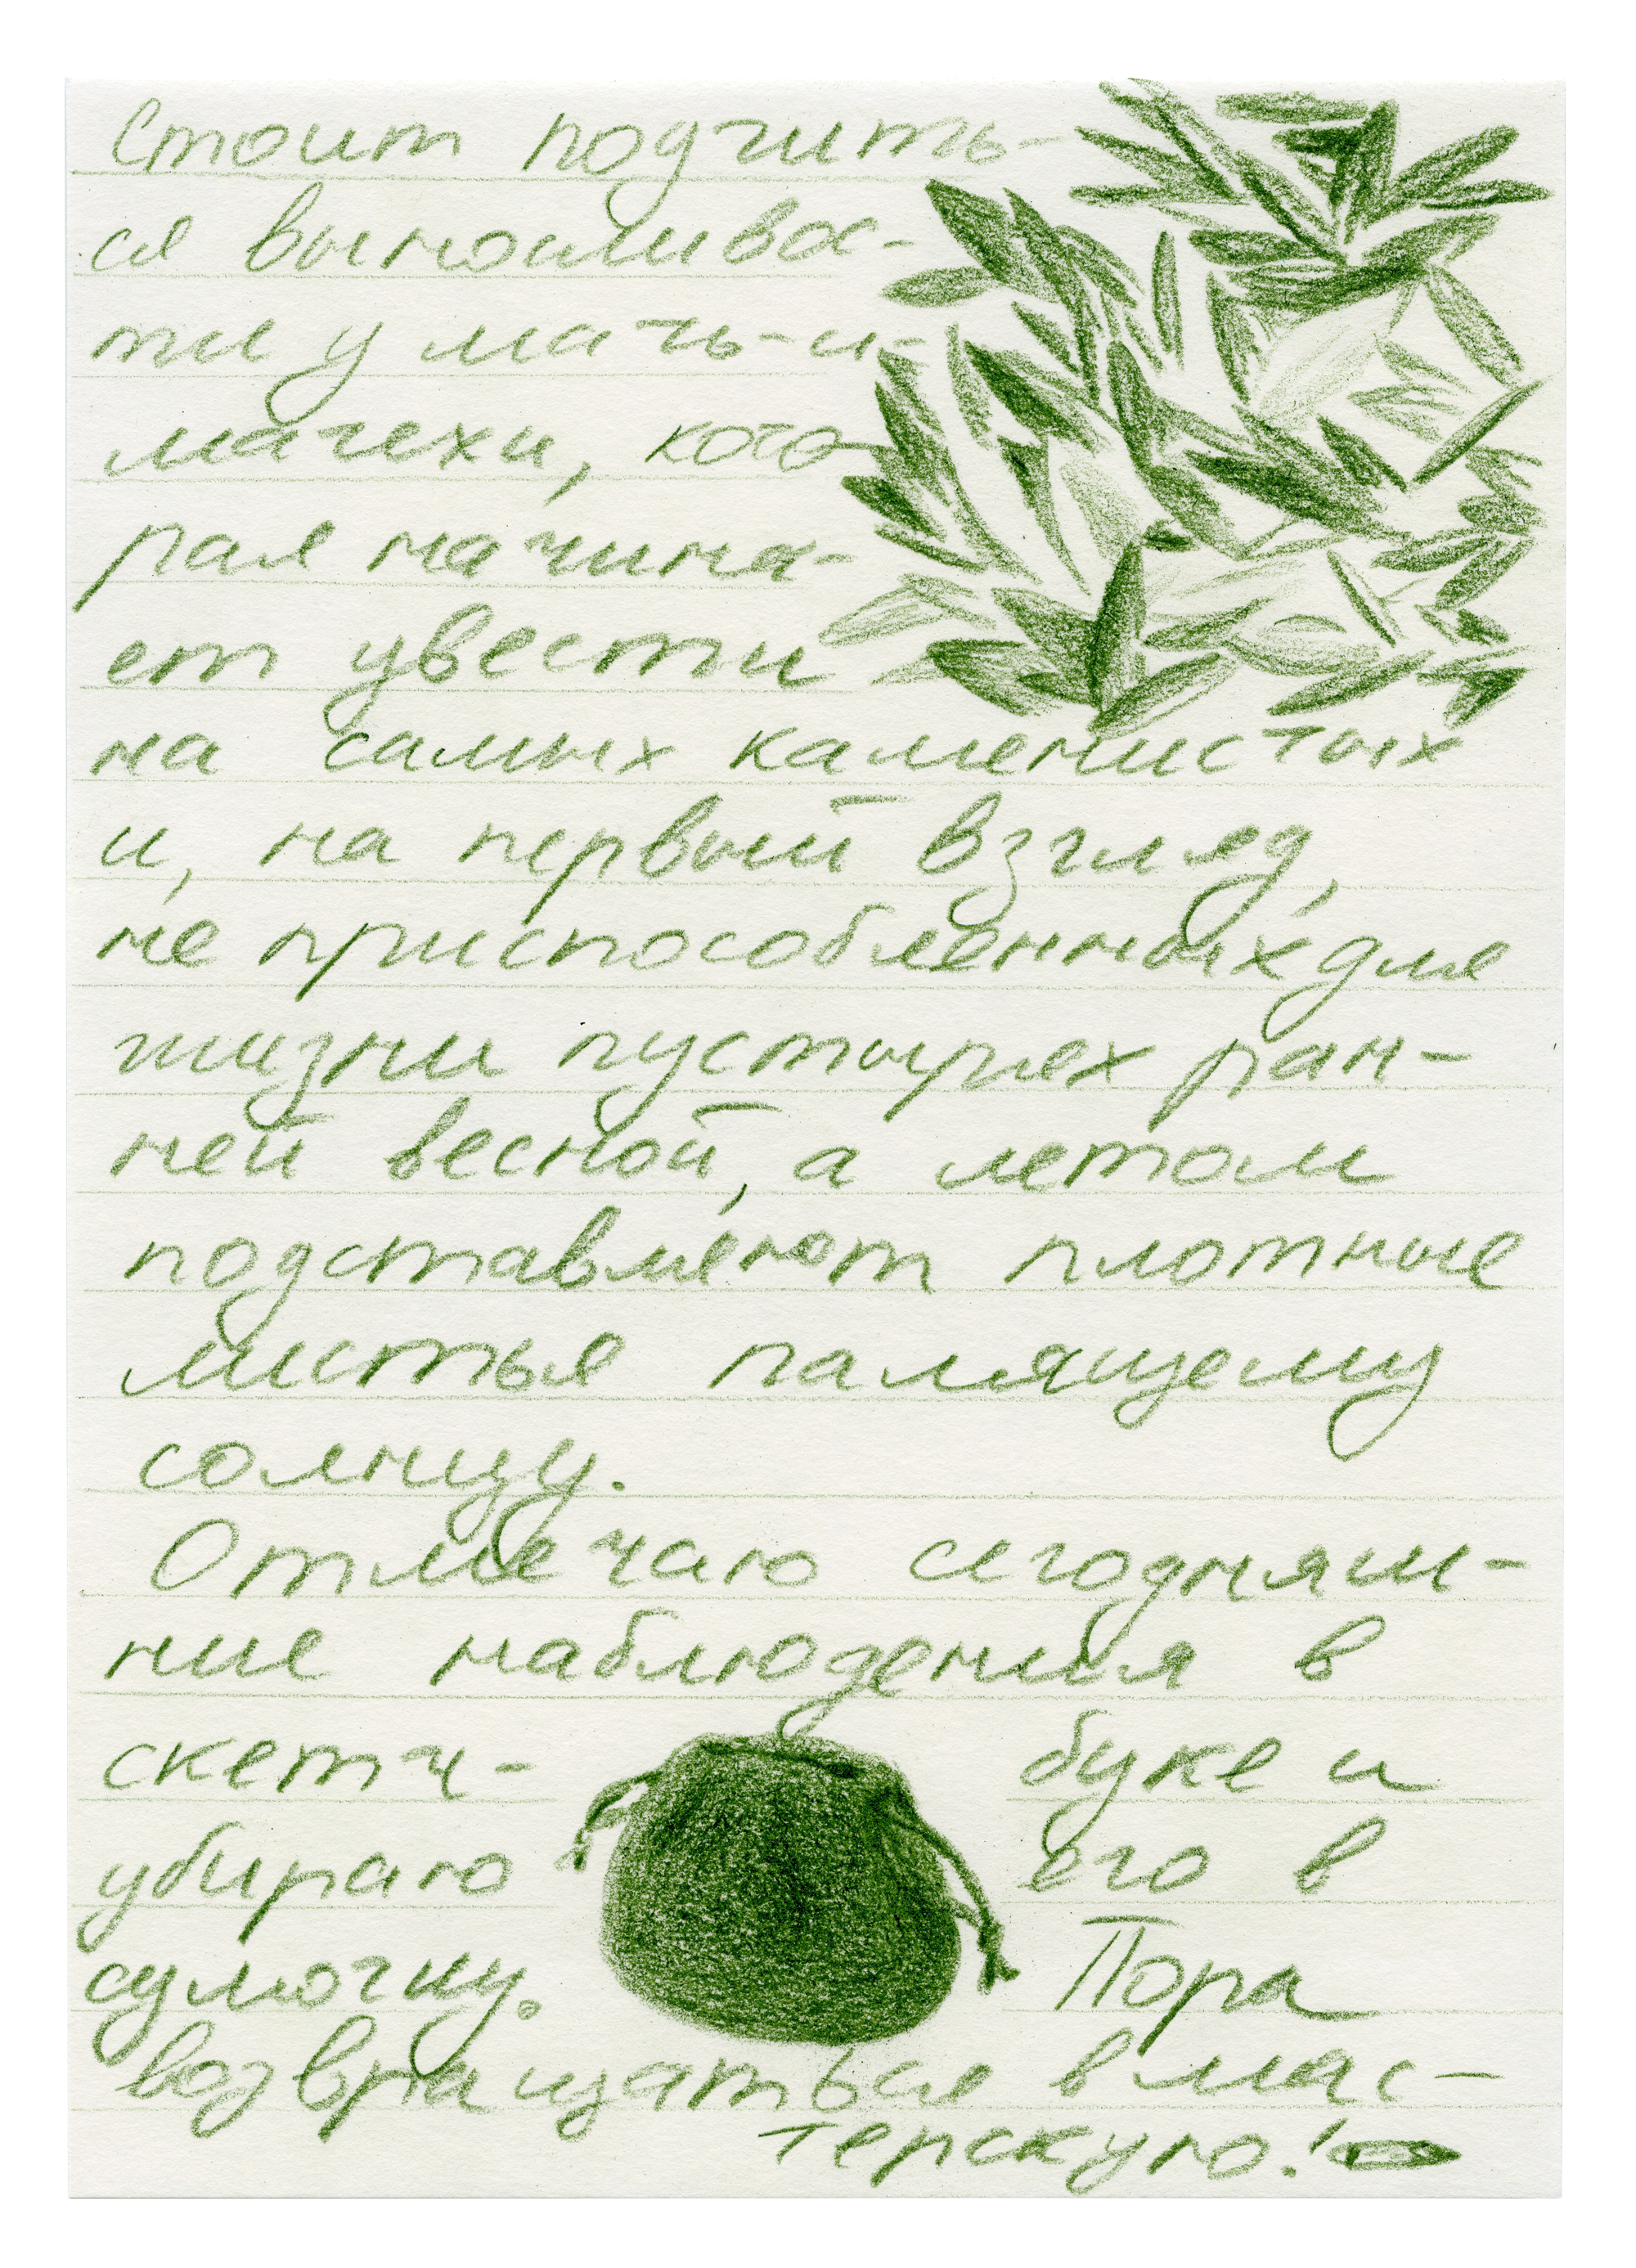 Стоит подчить-
ся выносливос-
ти у мать-и-
мачехи, кото-
рая начина-
ет цвести
на самых каменистых
и, на первый взгляд,
не приспособленных для
жизни пустырях ран-
ней весной, а летом
подставляют плотные
листья палящему
солнцу.
Отмечаю сегодняш-
ние наблюдения в
скетч- буке и
убираю его в
сумочку. Пора
возвращаться в мас-
терскую!